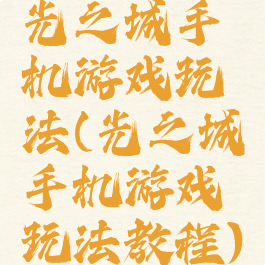 光之城手
机游戏玩
法(光之城
手机游戏
玩法教程)